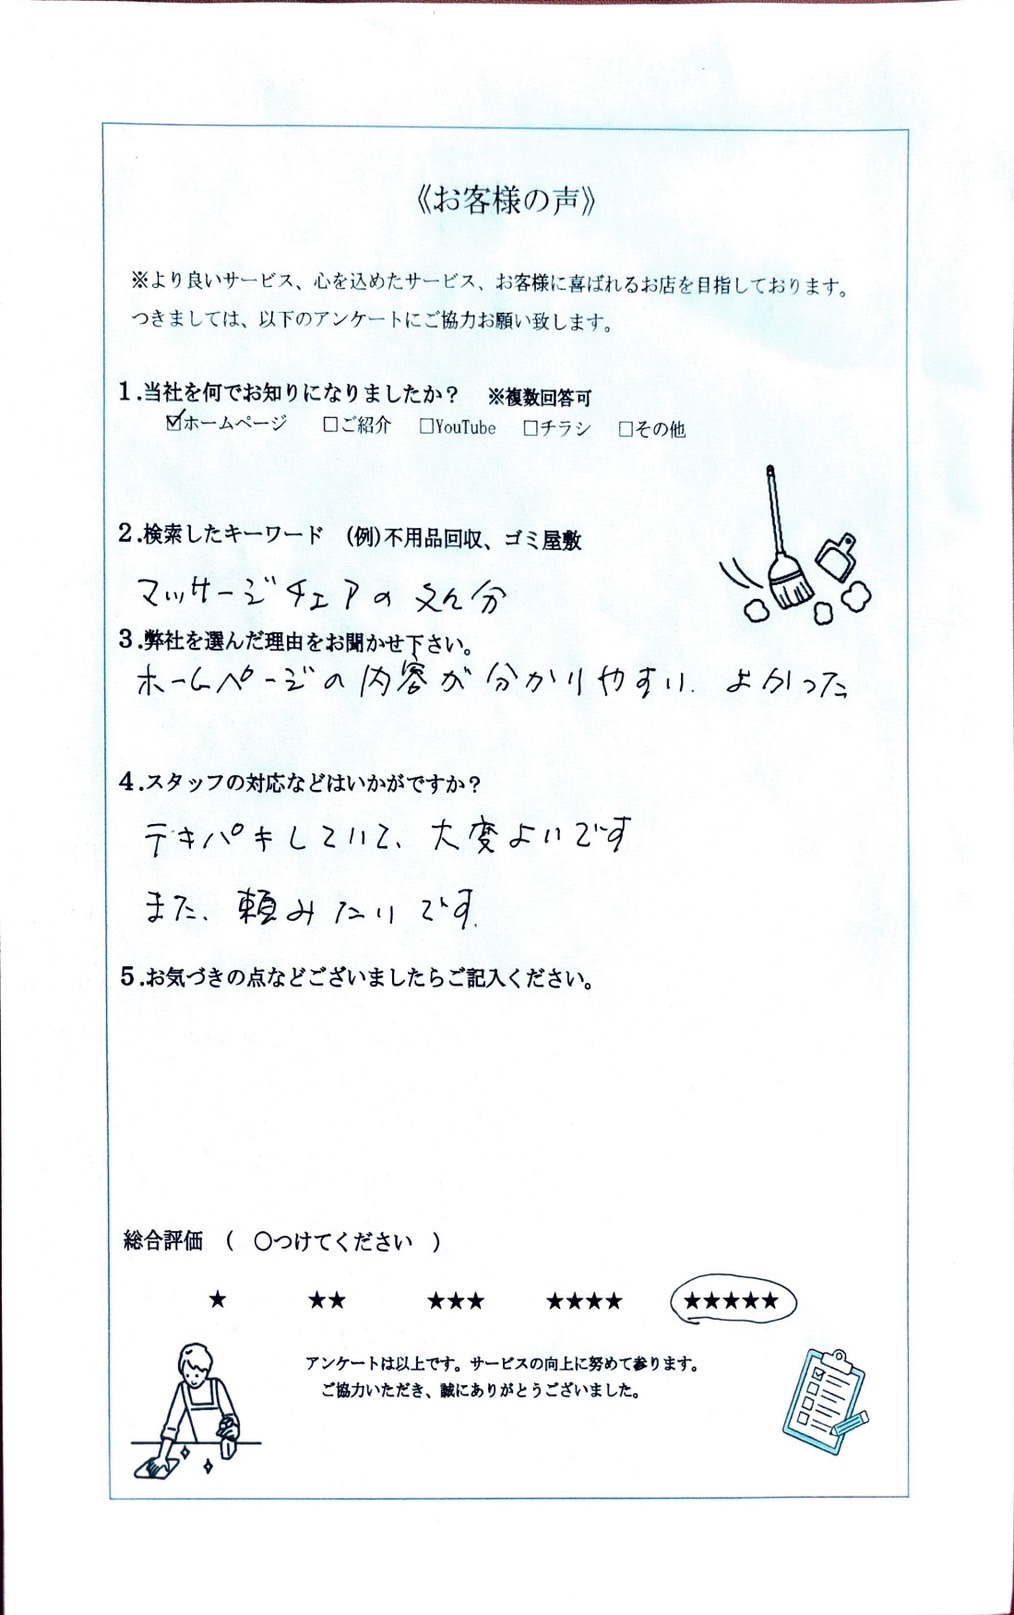 《お客様の声》
※より良いサービス、心を込めたサービス、お客様に喜ばれるお店を目指しております。
つきましては、以下のアンケートにご協力お願い致します。
1.当社を何でお知りになりましたか？　※複数回答可
☑ホームページ　□ご紹介　□YouTube　□チラシ　□その他
2.検索したキーワード　(例)不用品回収、ゴミ屋敷
マッサージチェアの処分
3.弊社を選んだ理由をお聞かせ下さい。
ホームページの内容が分かりやすい、よかった
4.スタッフの対応などはいかがですか？
テキパキしていて、大変よいです
また、頼みたいです。
5.お気づきの点などございましたらご記入ください。
総合評価　(　○つけてください　)
★　★★　★★★　★★★★　★★★★★
アンケートは以上です。サービスの向上に努めて参ります。
ご協力いただき、誠にありがとうございました。